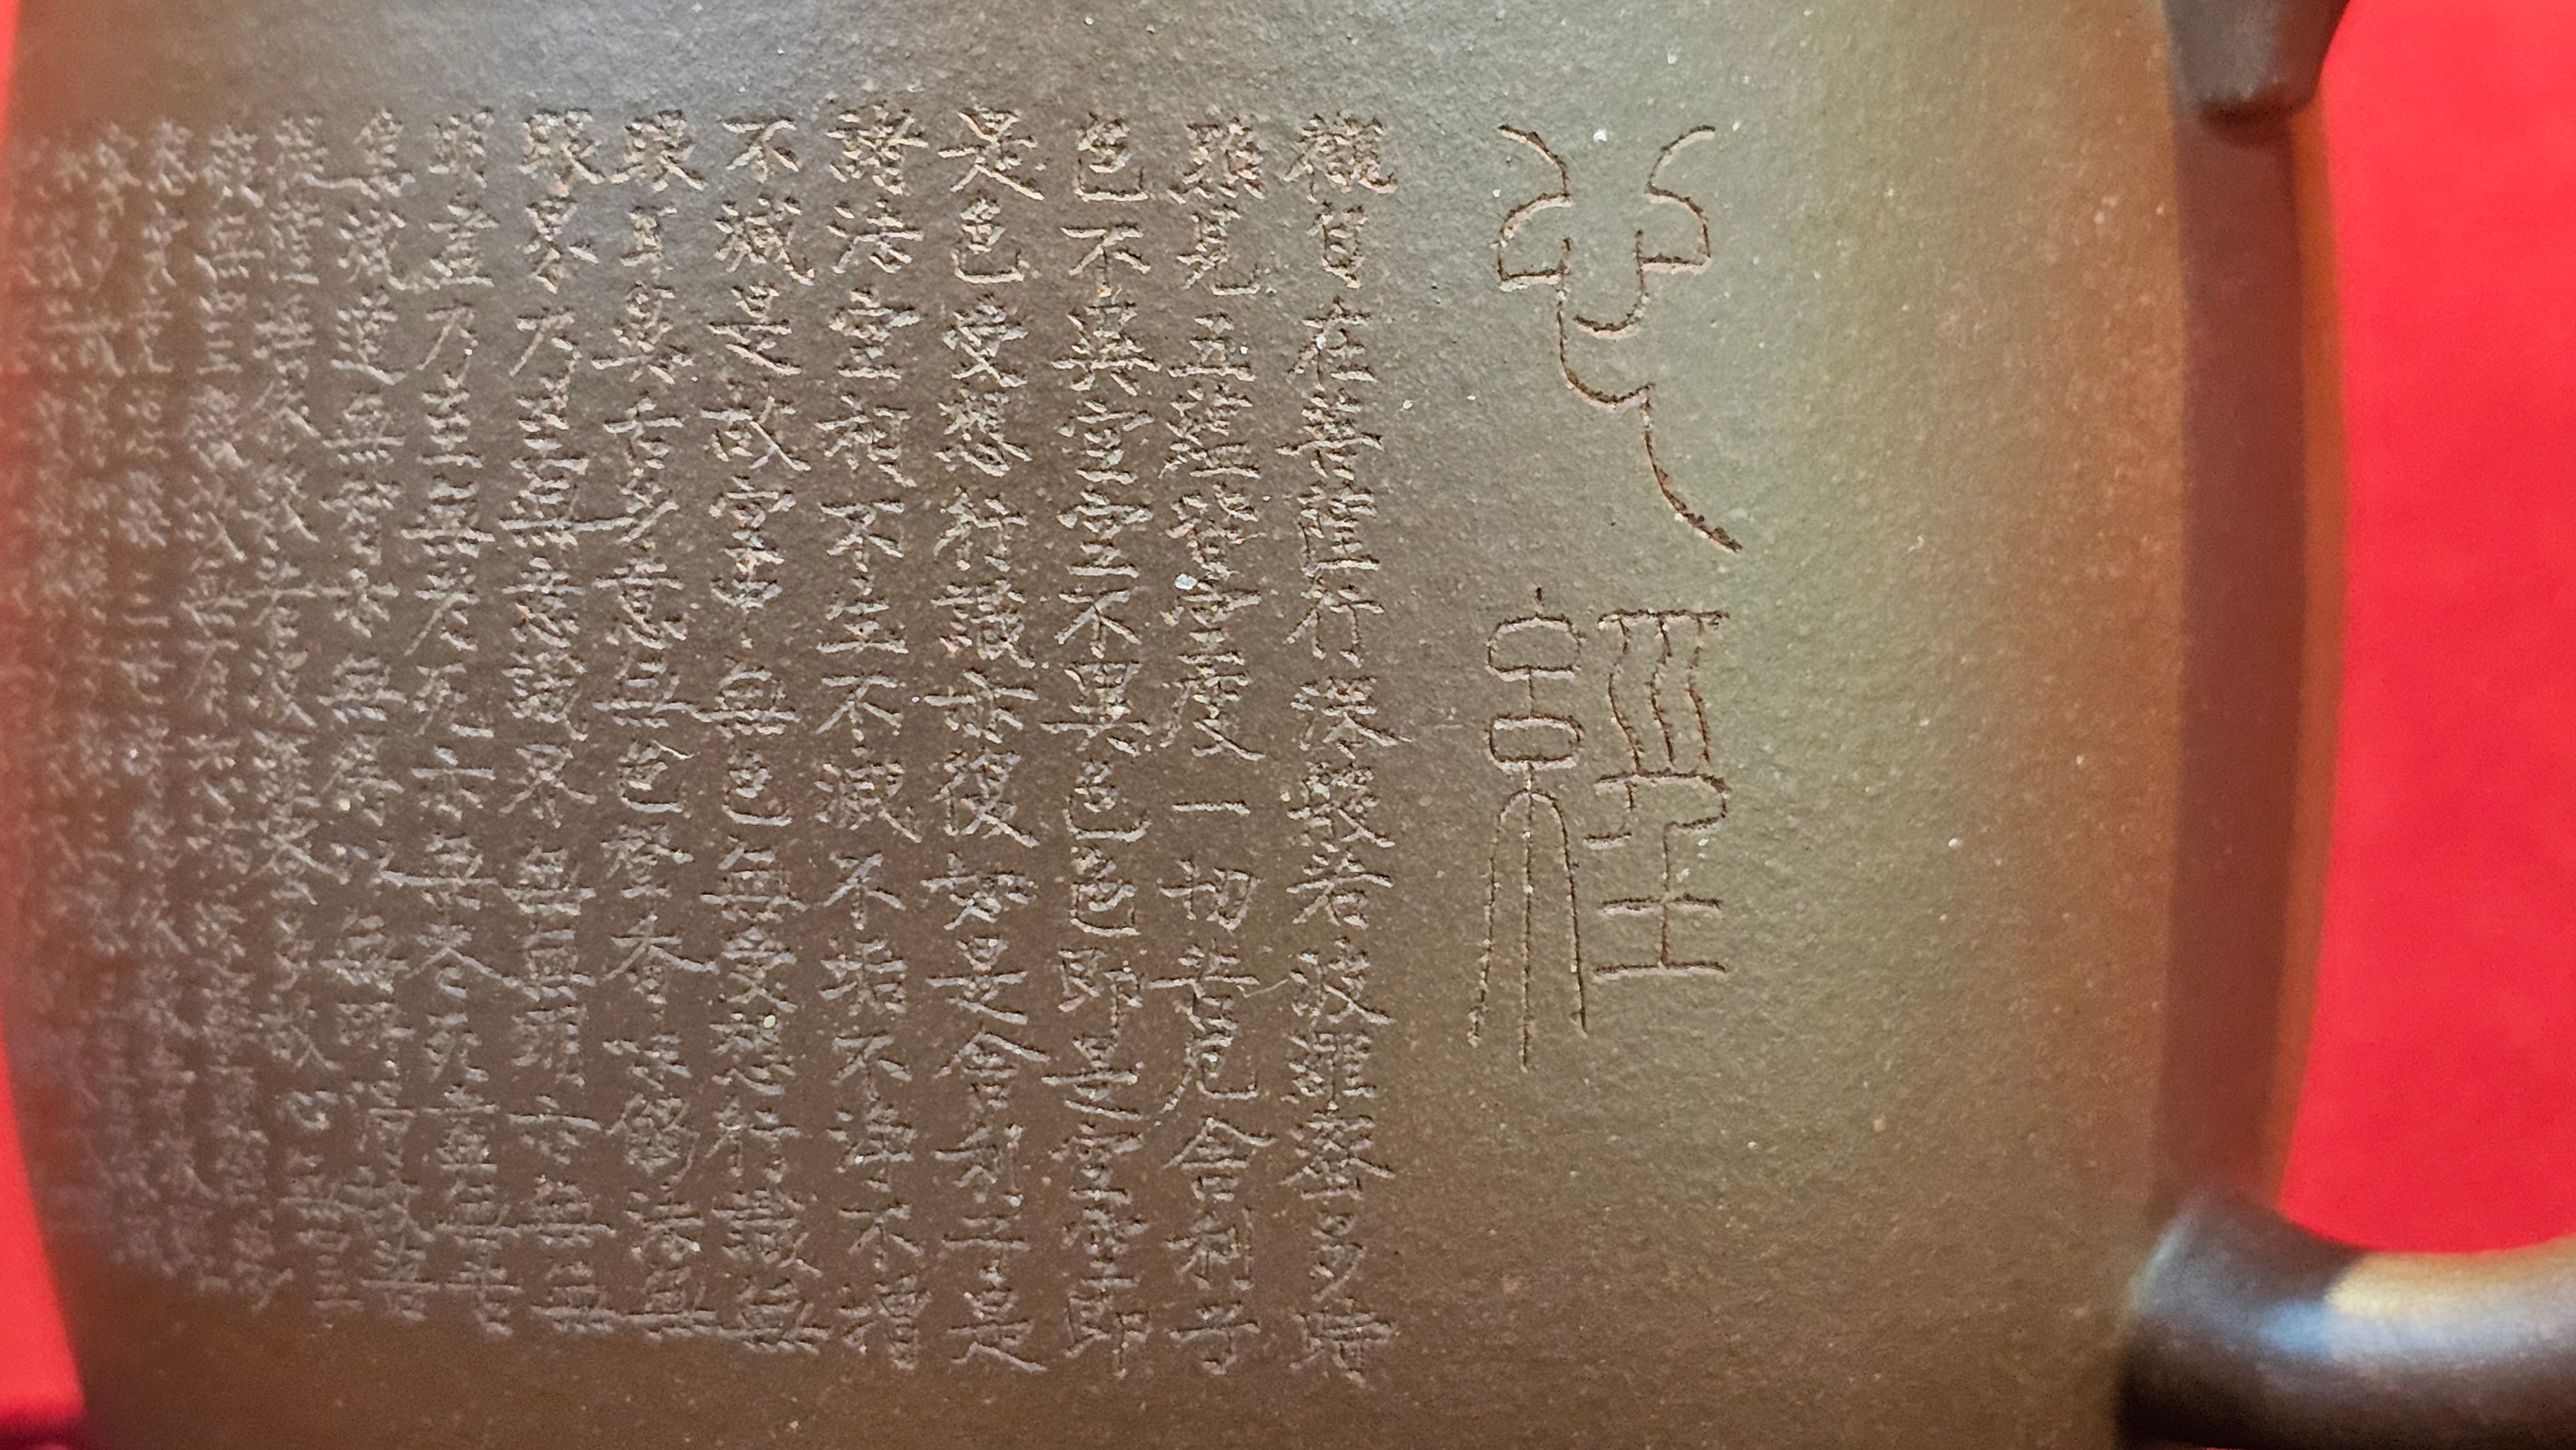 心經
觀自在菩薩行深般若波羅蜜多時
照見五蘊皆空度一切苦厄舍利子
色不異空空不異色色即是空空即
是色受想行識亦復如是舍利子是
諸法空相不生不滅不垢不淨不增
不減是故空中無色無受想行識無
眼耳鼻舌身意無色聲香味觸法無
眼界乃至無意識界無無明亦無無
明盡乃至無老死亦無老死盡無苦
集滅道無智亦無得以無所得故菩
提薩埵依般若波羅蜜多故心無罣
礙無罣礙故無有恐怖遠離顛倒夢